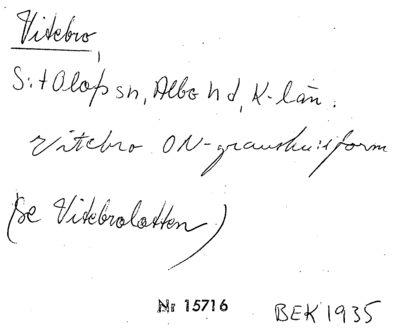 Vitebro,
S:t Olofs sn, Albo hd, K-län.
Vitebro ON-granskn:sform
(se Vitebrolotten)
Nr 15716 BEK 1935